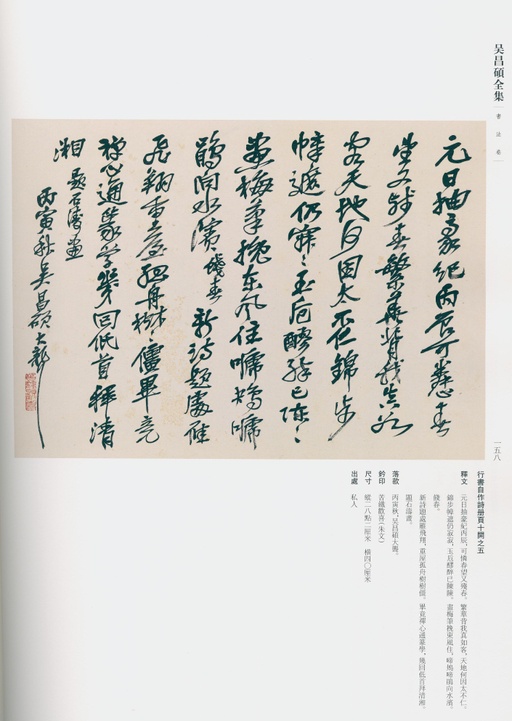 吴昌碩全集
書法卷
元日抽豪紀丙辰可憐春
望又殘春繁華背我真如
客天地何因太不仁錦步
幛遮仍寂〻玉卮醪醉已陳〻
畫梅筆挽東風住啼鴂啼
鵑向水濱 殘春 新詩題處雁
飛翔重屋孤舟樹〻儴畢竟
禪心通篆學幾回低首拜清
湘 題石濤畫
丙寅秋吳昌碩大聾
一五八
行書自作詩册頁十開之五
釋文
元日抽豪紀丙辰，可憐春望又殘春。繁華背我真如客，天地何因太不仁。
錦步幛遮仍寂寂，玉卮醪醉已陳陳。畫梅筆挽東風住，啼鴂啼鵑向水濱。
殘春。
新詩題處雁飛翔，重屋孤舟樹樹儴。畢竟禪心通篆學，幾回低首拜清湘。
題石濤畫。
落款
丙寅秋，吳昌碩大聾。
鈐印
苦鐵歡喜（朱文）
尺寸
縱二八點二厘米 橫四〇厘米
出處
私人